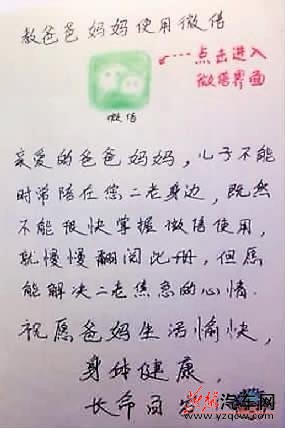 教爸爸妈妈使用微信
点击进入
微信界面
微信
亲爱的爸爸妈妈，儿子不能
时常陪在您二老身边，既然
不能很快掌握微信使用，
就慢慢翻阅此册，但愿
能解决二老焦急的心情.
祝愿爸妈生活愉快，
身体健康，
长命百
汽车网
www.yzqcw.com